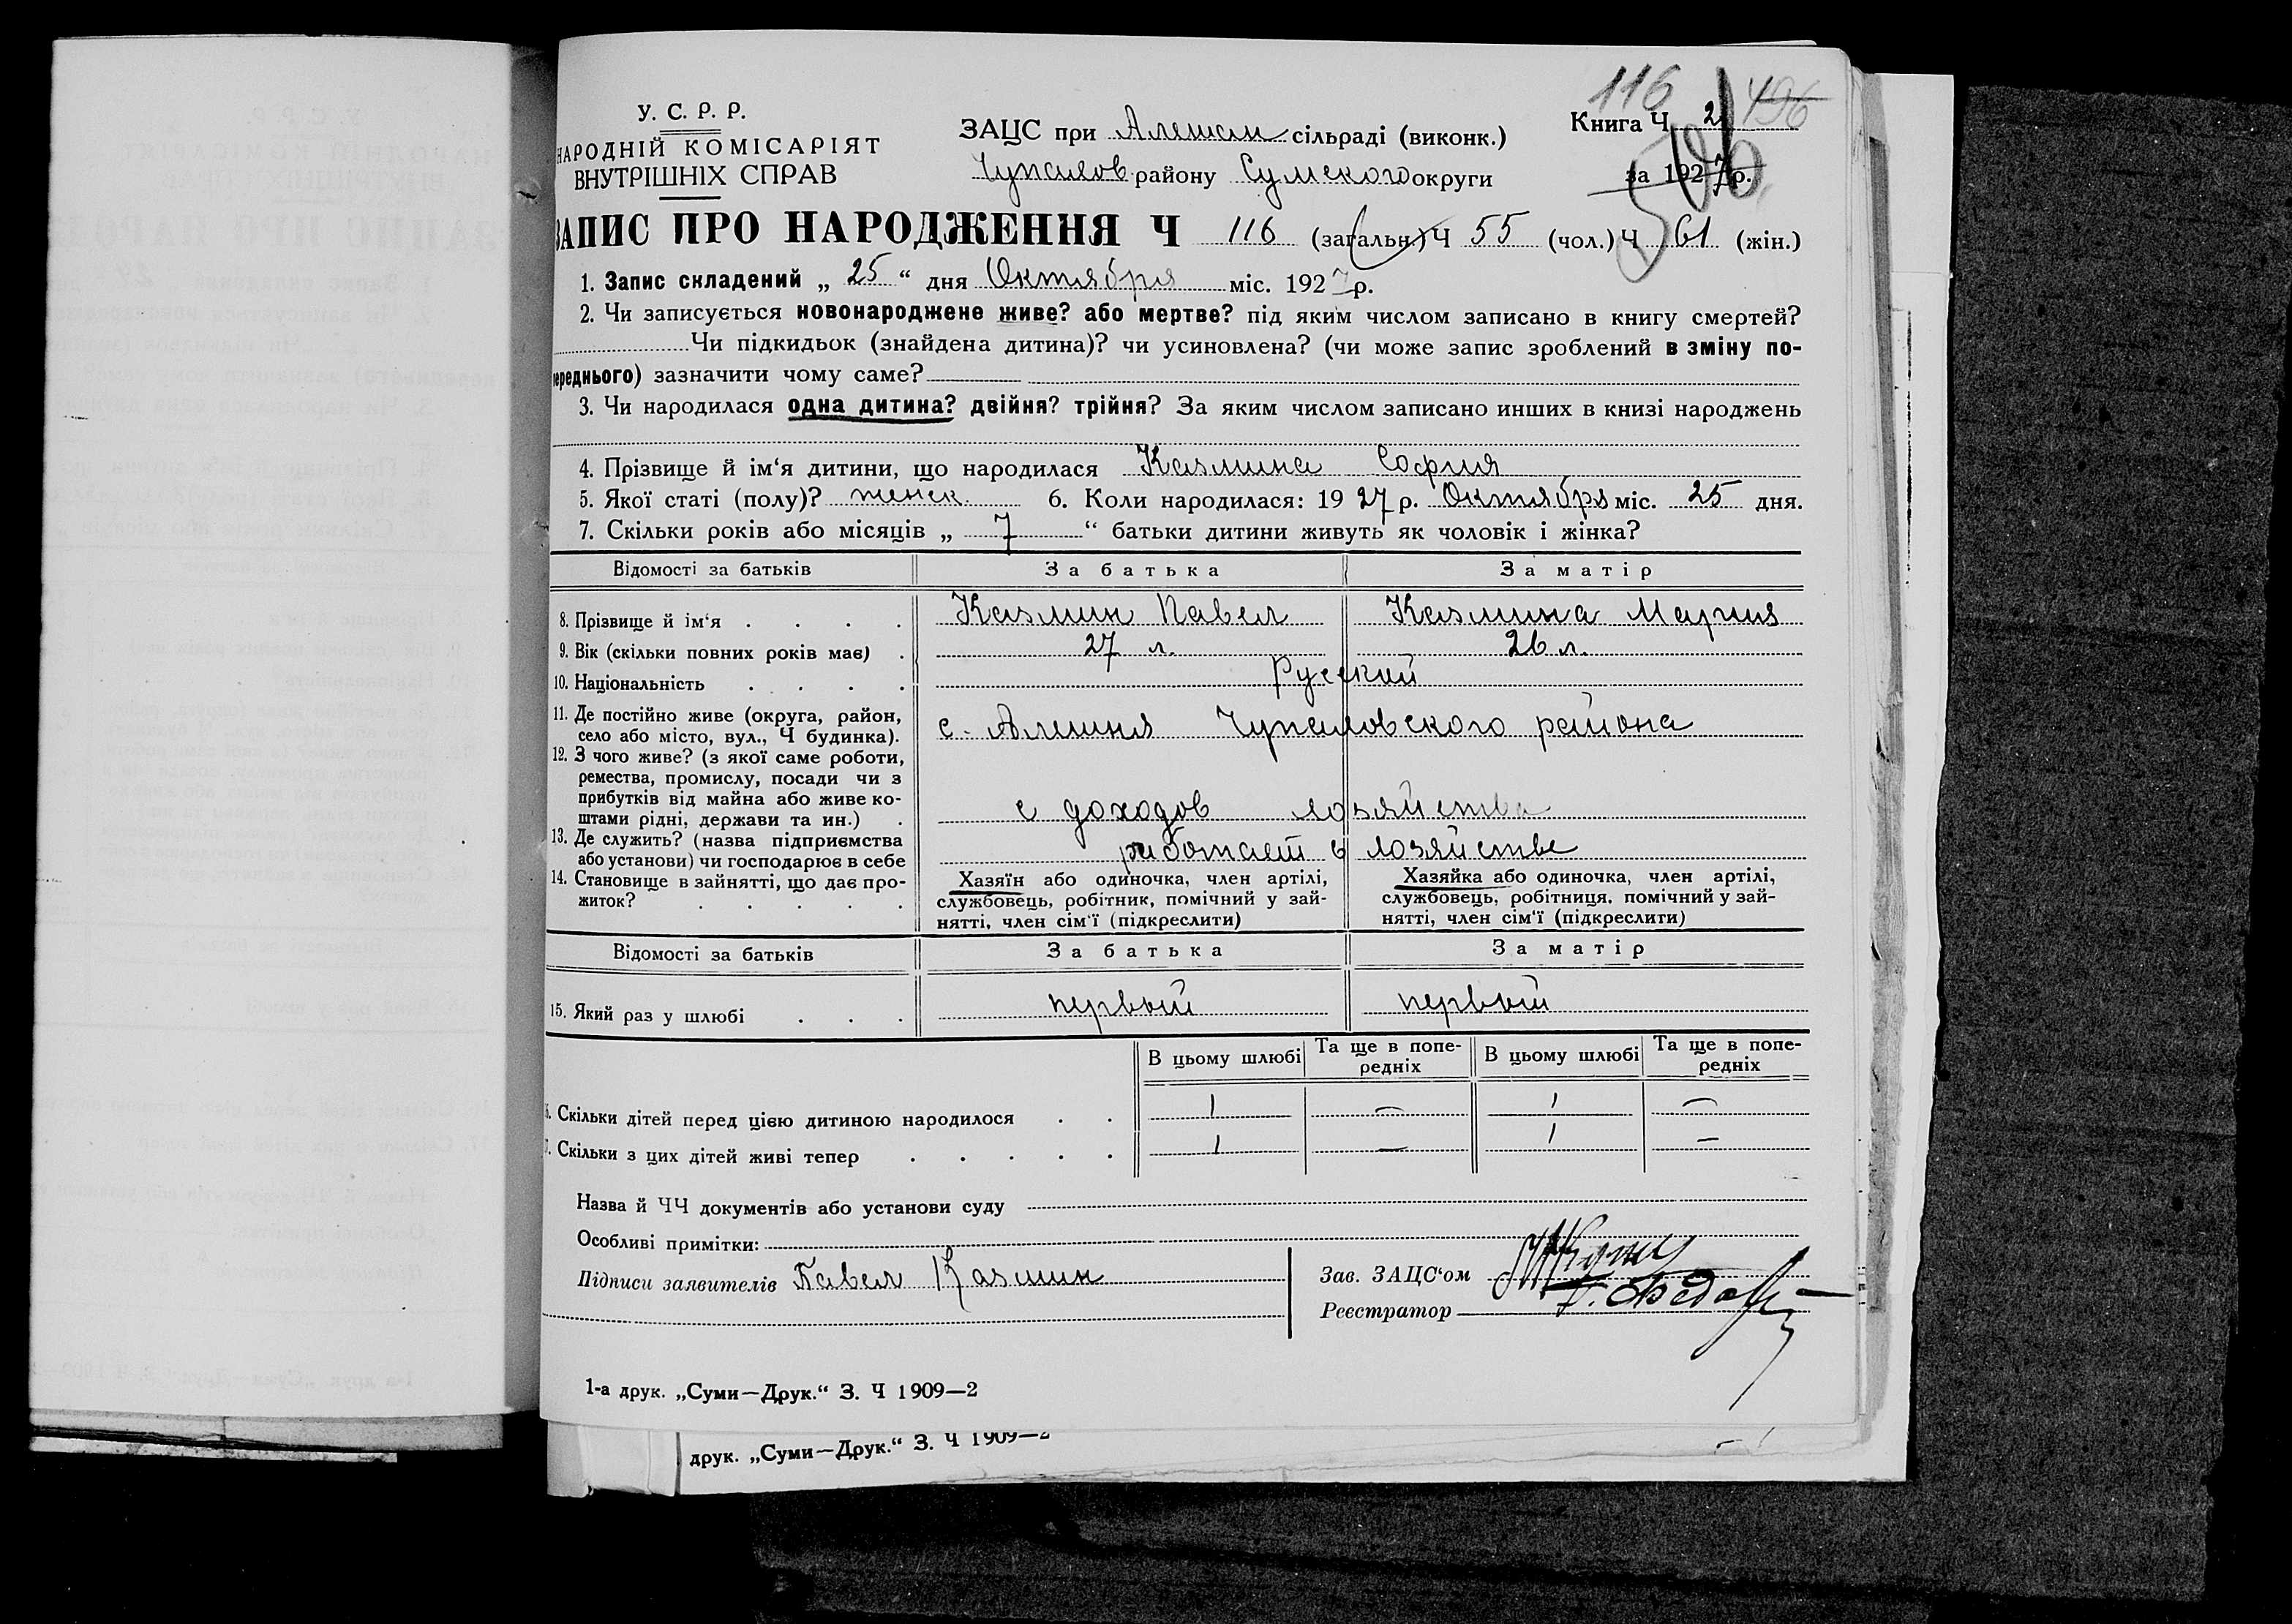 116 496
У. С. Р. Р.
НАРОДНІЙ КОМІСАРІЯТ
ВНУТРІШНІХ СПРАВ
ЗАЦС при Алешин сільраді (виконк.)
Чупилов району Сумского округи
Книга Ч. 2
за 1927 р.
ЗАПИС ПРО НАРОДЖЕННЯ Ч 116 (загальн.) Ч 55 (чол.) Ч 61 (жін.)
1. Запис складений „ 25 “ дня Октября міс. 1927 р.
2. Чи записується новонароджене живе? або мертве? під яким числом записано в книгу смертей?
Чи підкидьок (знайдена дитина)? чи усиновлена? (чи може запис зроблений в зміну по-
переднього) зазначити чому саме?
3. Чи народилася одна дитина? двійня? трійня? За яким числом записано инших в книзі народжень
4. Прізвище й ім‘я дитини, що народилася Казмина София
5. Якої статі (полу)? женск. 6. Коли народилася: 1927 р. Октября міс. 25 дня.
7. Скільки років або місяців „ 7 “ батьки дитини живуть як чоловік і жінка?
Відомості за батьків За батька За матір
8. Прізвище й ім‘я . . . . Казмин Павел Казмина Мария
9. Вік (скільки повних років має) . 27 л. 26 л.
10. Національність . . . . Русский
11. Де постійно живе (округа, район,
село або місто, вул., Ч будинка). с. Алешня Чупиловского района
12. З чого живе? (з якої саме роботи,
ремества, промислу, посади чи з
прибутків від майна або живе ко-
штами рідні, держави та ин.) . с доходов хозяйства
13. Де служить? (назва підприємства
або установи) чи господарює в себе работает в хозяйстве
14. Становище в зайнятті, що дає про-
житок? . . . . .
Хазяїн або одиночка, член артілі,
службовець, робітник, помічний у зай-
нятті, член сім‘ї (підкреслити)
Хазяйка або одиночка, член артілі,
службовець, робітниця, помічний у зай-
нятті, член сім‘ї (підкреслити)
Відомості за батьків За батька За матір
15. Який раз у шлюбі . . . первый первый
В цьому шлюбі Та ще в попе-
редніх В цьому шлюбі Та ще в попе-
редніх
6. Скільки дітей перед цією дитиною народилося . . 1 — 1 —
7. Скільки з цих дітей живі тепер . . . . . 1 — 1 —
Назва й ЧЧ документів або установи суду
Особливі примітки:
Підписи заявителів Павел Казмин
Зав. ЗАЦС‘ом
Реєстратор
1-а друк. „Суми—Друк.“ З. Ч 1909—2
друк. „Суми—Друк.“ З. Ч 1909—2